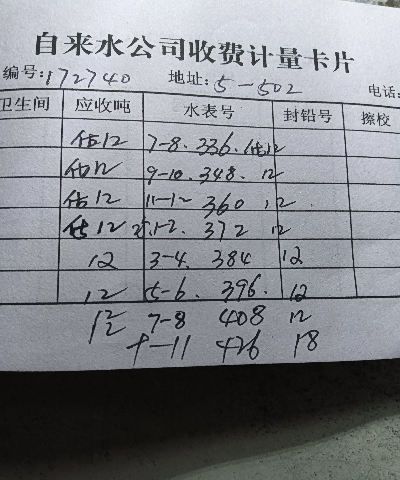 自来水公司收费计量卡片
编号:172740 地址:5-502 电话:
卫生间 应收吨 水表号 封铅号 擦校
估12 7-8. 336. 估12
估12 9-10. 348. 12
估12 11-12 360. 12
估12 25.1-2. 372 12
12 3-4. 384 12
12 5-6. 396. 12
12 7-8 408 12
十-11 426 18